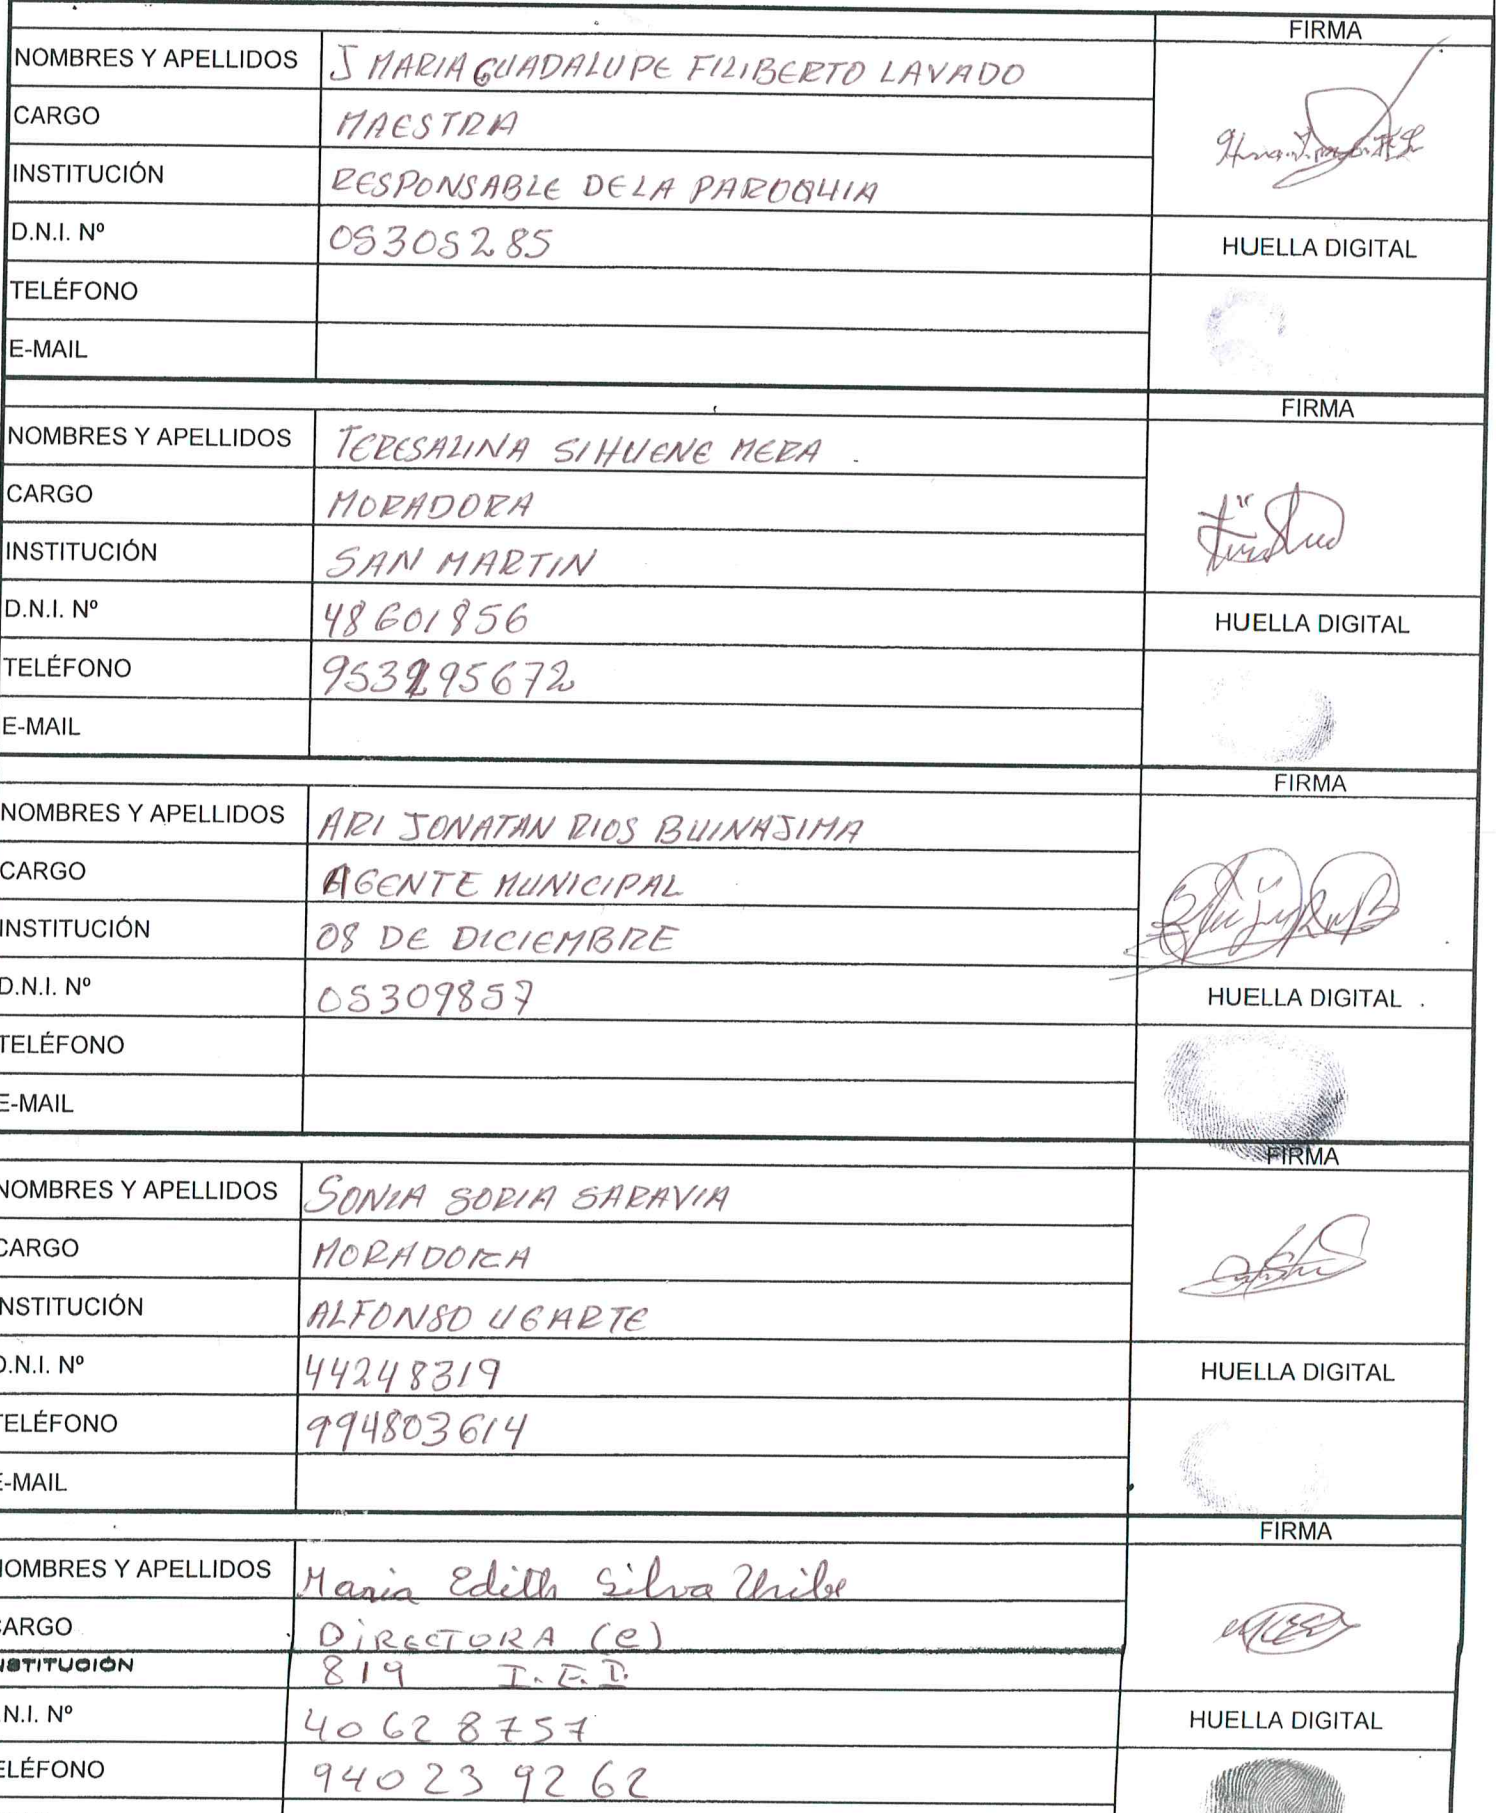 FIRMA
NOMBRES Y APELLIDOS J MARIA GUADALUPE FILIBERTO LAVADO
CARGO MAESTRA
INSTITUCIÓN RESPONSABLE DE LA PAROQUIA
D.N.I. Nº 05305285 HUELLA DIGITAL
TELÉFONO
E-MAIL
FIRMA
NOMBRES Y APELLIDOS TERESALINA SIHUENE MERA .
CARGO MORADORA
INSTITUCIÓN SAN MARTIN
D.N.I. Nº 48601856 HUELLA DIGITAL
TELÉFONO
E-MAIL
FIRMA
NOMBRES Y APELLIDOS ARI JONATAN RIOS BUINAJIMA
CARGO AGENTE MUNICIPAL
INSTITUCIÓN 08 DE DICIEMBRE
D.N.I. Nº 05309857 HUELLA DIGITAL .
TELÉFONO
E-MAIL
FIRMA
NOMBRES Y APELLIDOS SONIA SORIA SARAVIA
CARGO MORADORA
INSTITUCIÓN ALFONSO UGARTE
D.N.I. Nº 44248319 HUELLA DIGITAL
TELÉFONO 994803614
E-MAIL
FIRMA
NOMBRES Y APELLIDOS Maria Edith Silva Uribe
CARGO DIRECTORA (e)
NSTITUCIÓN 819 I.E.I.
.N.I. Nº 40628757 HUELLA DIGITAL
ELÉFONO 940239262